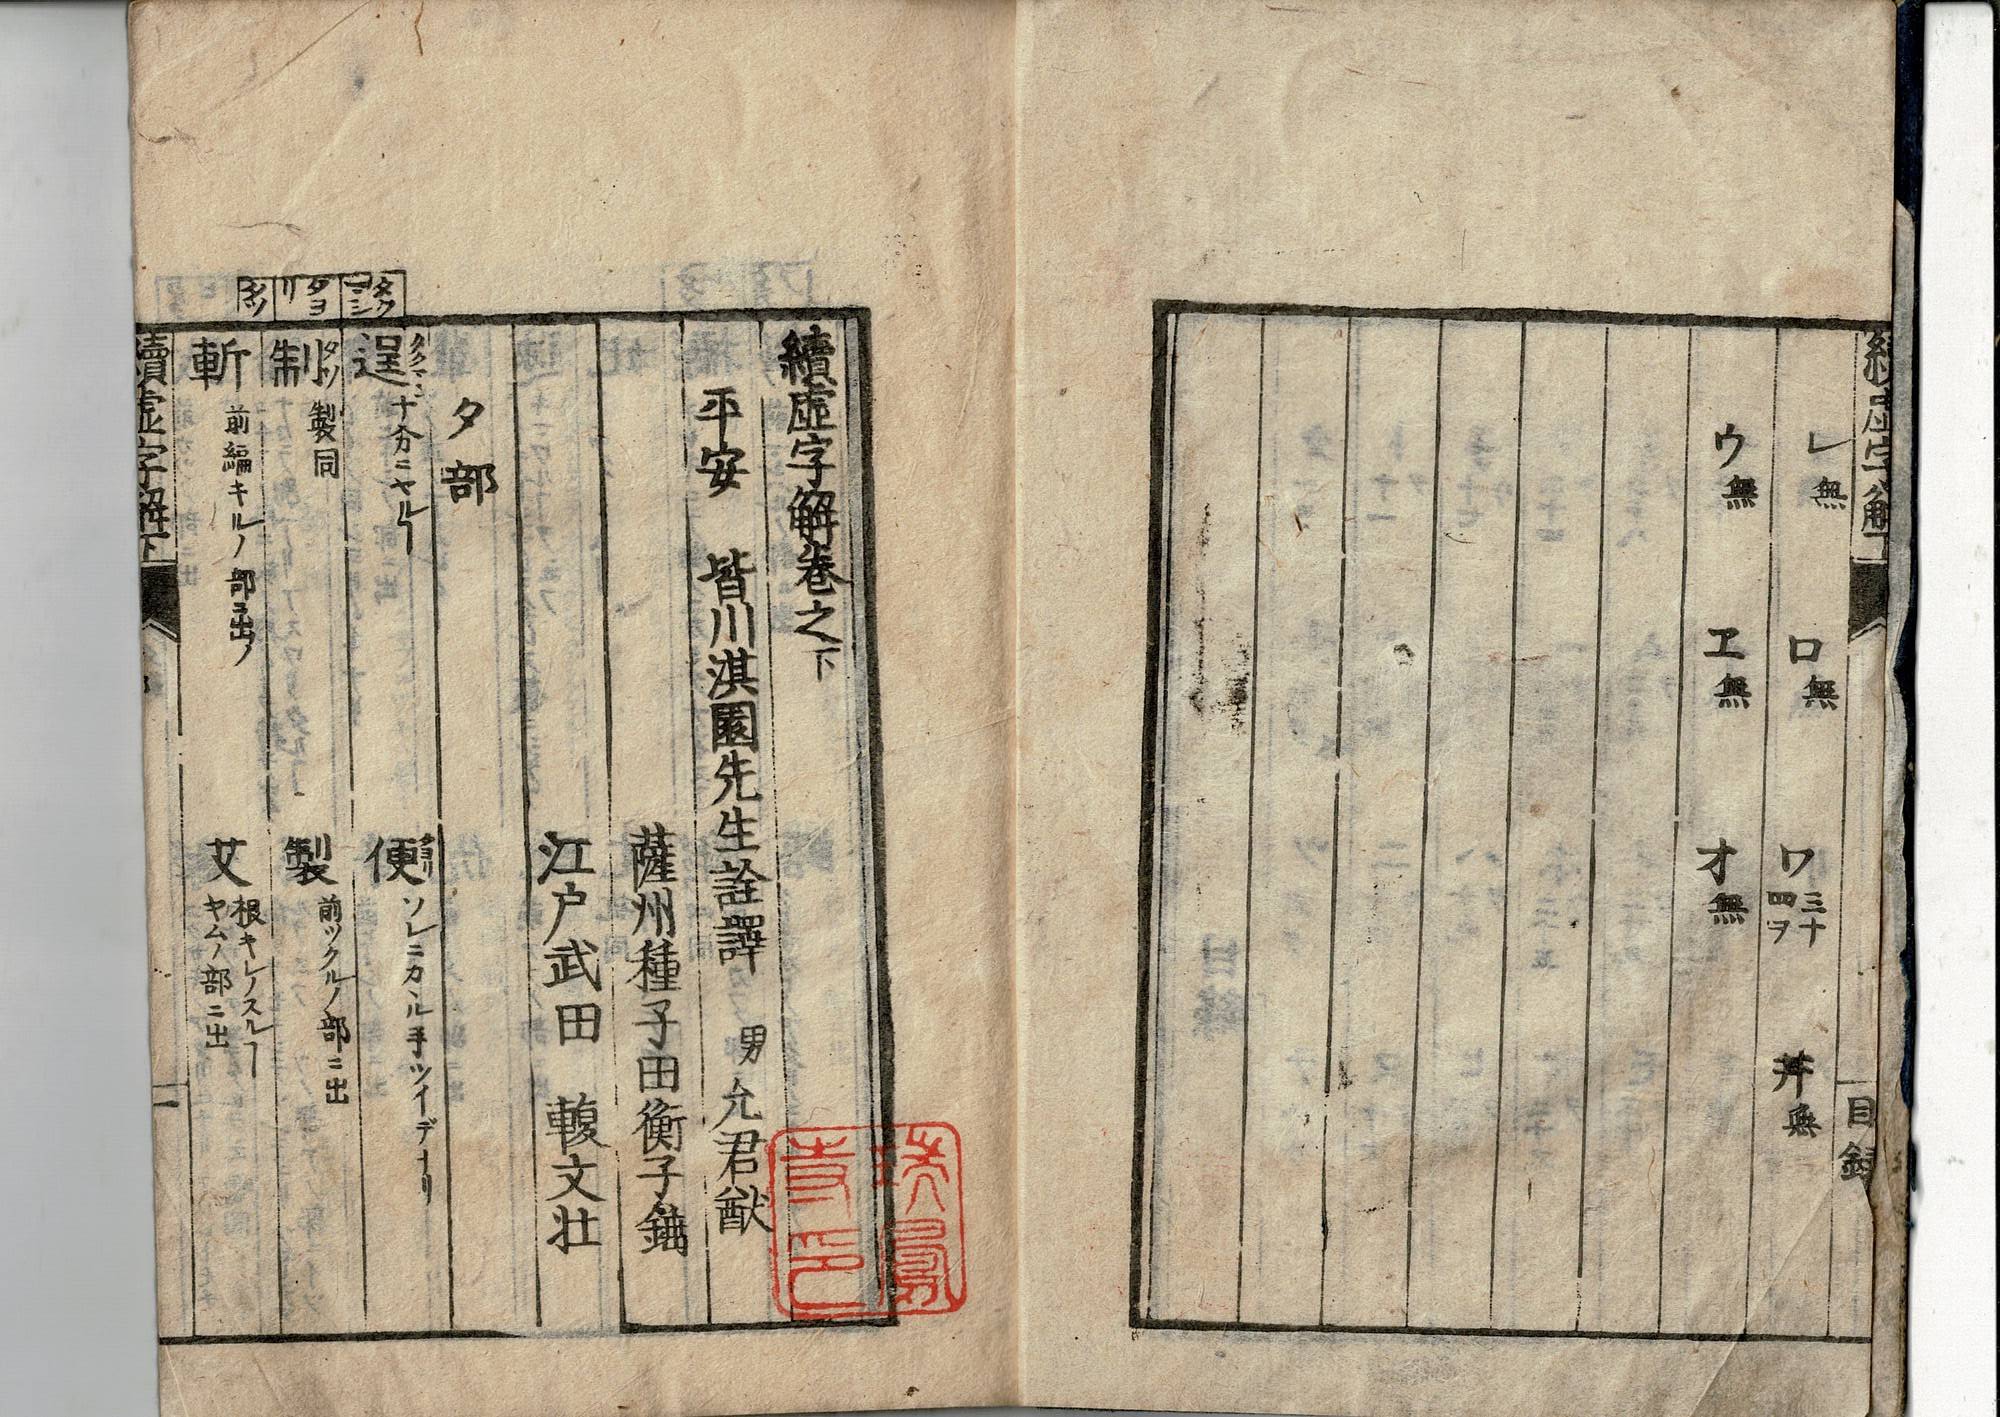 續虛字解下
目録
レ無 ロ無 ワ三十四ヲ 井無
ウ無 ヱ無 オ無
續虛字解卷之下
平安 皆川淇園先生詮譯 男 允君猷
薩州種子田衡子鏞
江戸武田 輹文壮
タ部
タクマシ
タヨリ
タツ
逞 タクマシ 十分ニヤルヿ
便 タヨリ ソレニカヽル手ツイデナリ
制 タツ 製同
製 前ツクルノ部ニ出
斬 前編キルノ部ニ出ツ
艾 根キレノスルヿ ヤムノ部ニ出
續虛字解下
一